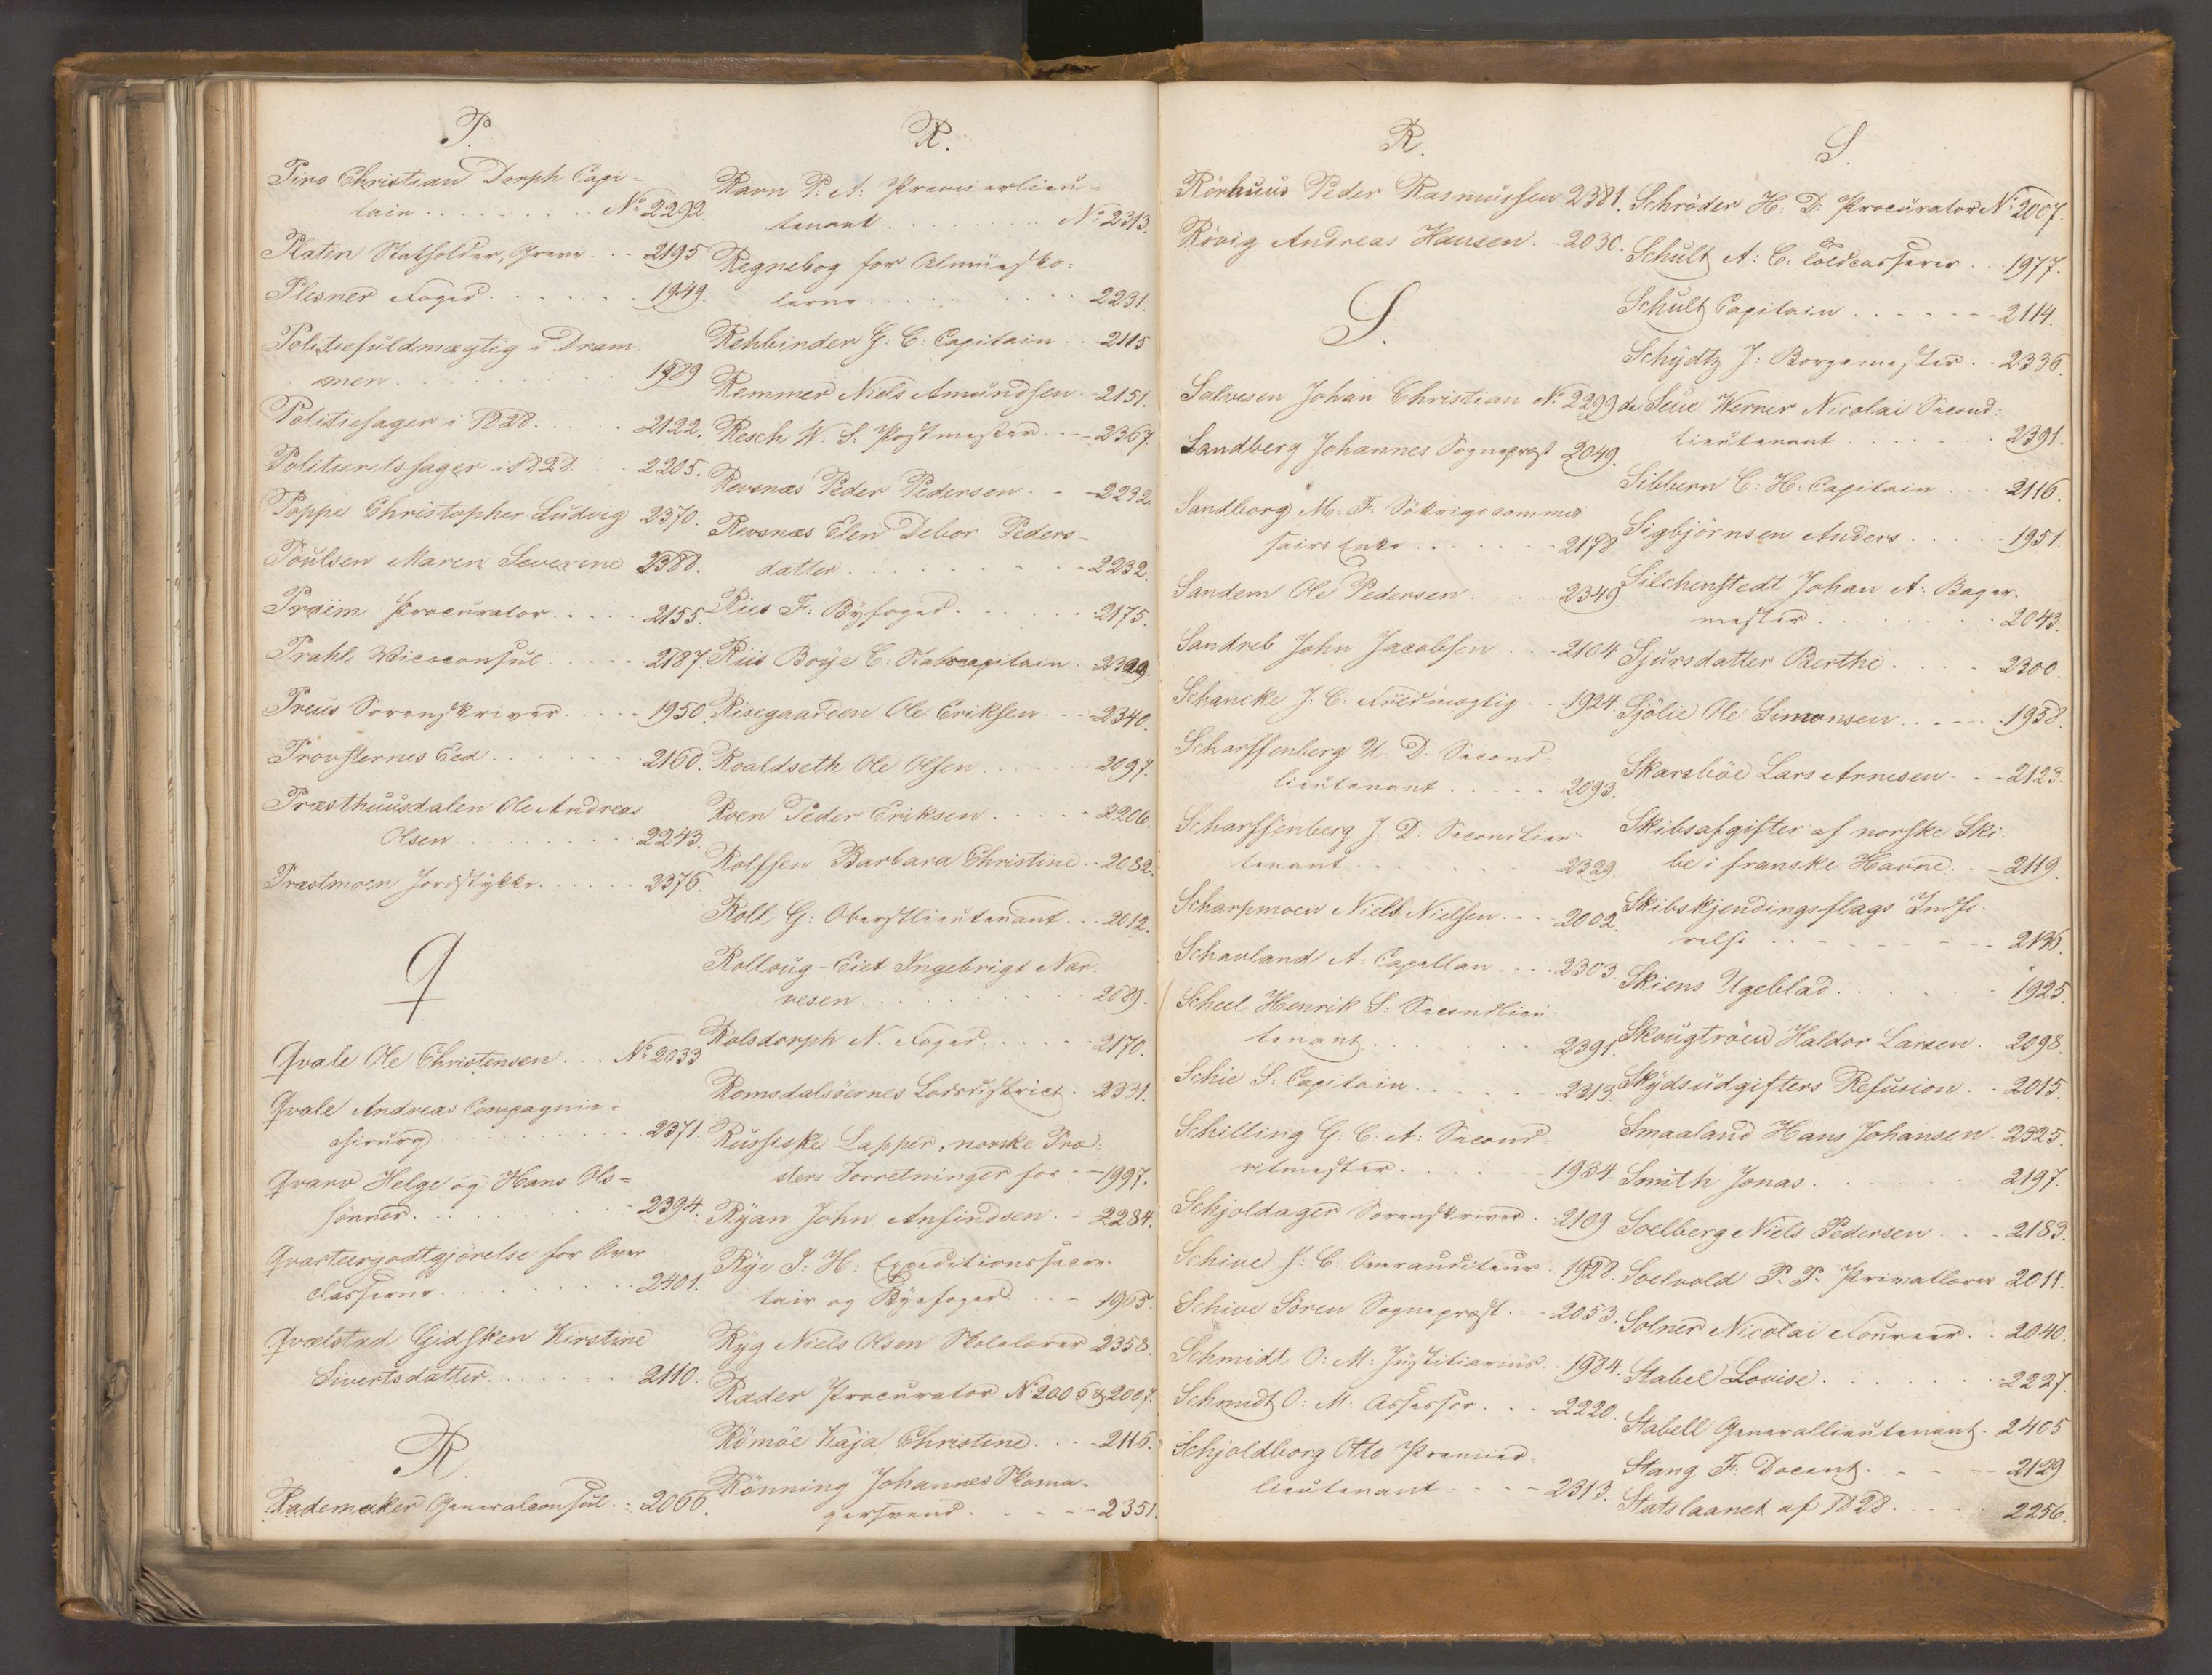 P.
Piro Christian Dorph Capi-
tain . . . . . . . . No 2292.
Platen Statholder, Greve . . . 2195.
Plesner Foged . . . . . . 1949.
Politiefuldmægtig i Dram-
men . . . . . . . . 1989
Politiesager i 1828 . . . . 2122.
Politieretssager i 1828 . . 2205.
Poppe Christopher Ludvig 2370.
Poulsen Maren Severine 2388.
Praëm Procurator . . . . . 2155.
Prahl Viceconsul . . . . . 2187.
Preus Sorenskriver . . . . . 1950.
Provsternes Eed . . . . . . 2160.
Præsthuusdalen Ole Andreas
Olsen . . . . . . . . 2243.
Præstmoen Jordstykke . . . . . 2376.
Q
Qvale Ole Christensen . . . No 2033
Qvale Andreas Compagnie-
chirurg . . . . . . . . 2371.
Qvarv Helge og Hans Ols-
sønner . . . . . . . . 2394.
Qvarteergodtgjörelse for Over
classerne . . . . . . . . 2401.
Qvalstad Gidsken Kirstine
Sivertsdatter . . . . . . 2110.
R.
Rademaker Generalconsul . . 2066.
R.
Ravn P. A: Premierlieu-
tenant . . . . . . . . No 2313.
Regnebog for Almuesko-
lerne . . . . . . . . 2231.
Rehbinder G: C: Capitain . . 2115
Remmer Niels Amundsen . . 2151.
Resch W: S: Postmester . . . 2367.
Revsnæs Peder Pedersen . . 2232.
Revsnæs Elen Debor Peders-
datter . . . . . . . . 2232.
Riis F: Byfoged . . . . . . 2175.
Riis Boye C: Stabscapitain . 2399.
Risegaarden Ole Eriksen . . . 2340.
Roaldseth Ole Olsen . . . . . 2097.
Roen Peder Eriksen . . . . . 2206.
Rolfsen Barbara Christine . . 2082.
Roll, G: Oberstlieutenant . . . 2012.
Rolloug-Eiet Ingebrigt Nar-
vesen . . . . . . . . 2089.
Rolsdorph N. Foged . . . . . 2170.
Romsdalsöernes Lodsdistrict . 2331.
Russiske Lapper, norske Præ-
sters Forretninger for . . 1997.
Ryan John Anfindsen . . 2284.
Rye J: H: Expeditionssecre-
tair og Byefoged . . . 1965.
Ryg Niels Olsen Skolelærer 2358.
Ræder Procurator No 2006 & 2007.
Römöe Kaja Christine . . . 2116.
Rönning Johannes Skoma-
gersvend . . . . . 2351.
R.
Rörhuus Peder Rasmussen 2381.
Rövig Andreas Hansen . . 2030.
S.
Salvesen Johan Christian No 2299
Sandberg Johannes Sognepræst 2049.
Sandborg M: F. Sökrigscommis
sairs Enke . . . . . . 2178.
Sandem Ole Pedersen . . . . 2349.
Sandreb John Jacobsen . . . 2104
Schancke J. C. Fuldmægtig . . 1924
Scharffenberg U. D: Second-
lieutenant . . . . . 2093.
Scharffenberg J. D: Secondlieu-
tenant . . . . . . 2329.
Scharpmoen Niels Nielsen . . . 2002.
Schavland A: Capellan . . . . 2303.
Scheel Henrik S: Secondlieu-
tenant . . . . . . . 2391.
Schie S: Capitain . . . . . 2313.
Schilling G: C: A: Second-
ritmester . . . . . . 1934.
Schjoldager Sorenskriver . 2109
Schive J: C. Overauditeur . 1928.
Schive Sören Sognepræst . . . 2053.
Schmidt O: M: Justitiarius . . 1984.
Schmidt O: M: Assessor . . . 2220.
Schjoldborg Otto Premier-
lieutenant . . . . 2313.
S.
Schröder H: D: Procurator No 2007.
Schult A: C: Toldcasserer . . . 1977.
Schult Capitain . . . . . . 2114.
Schydtz J: Borgemester . . 2336.
de Seue Werner Nicolai Second-
lieutenant . . . . . . 2391.
Sibbern C: H: Capitain . . . 2116.
Sigbjörnsen Anders . . . . . 1951.
Silchenstedt Johan A: Bager-
mester . . . . . . . 2043.
Sjursdatter Berthe . . . . 2300.
Sjölie Ole Simonsen . . . . 1958.
Skarsböe Lars Arnesen . . . 2123.
Skibsafgifter af norske Ski-
be i franske Havne . . 2119.
Skibskjendingsflags Indfö-
relse . . . . . . . . 2136
Skiens Ugeblad . . . . . . 1925.
Skougtröen Haldor Larsen . 2098.
Skydsudgifters Refusion . . 2015.
Smaaland Hans Johansen . 2325.
Smith Jonas . . . . . . . 2197.
Soelberg Niels Pedersen . . . 2183.
Soelvold P. P. Privatlærer 2011.
Solner Nicolai Foureer . . 2040.
Stabel Louise . . . . . . . 2227.
Stabell Generallieutenant . 2405
Stang F: Docent . . . . . 2129
Statslaanet af 1828 . . . . . 2256.